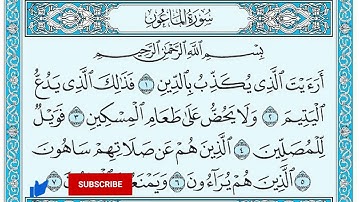 سُورَةُ المَاعُونِ
بِسْمِ اللَّهِ الرَّحْمَٰنِ الرَّحِيمِ
أَرَءَيْتَ الَّذِي يُكَذِّبُ بِالدِّينِ ١ فَذَٰلِكَ الَّذِي يَدُعُّ
الْيَتِيمَ ٢ وَلَا يَحُضُّ عَلَىٰ طَعَامِ الْمِسْكِينِ ٣ فَوَيْلٌ
لِّلْمُصَلِّينَ ٤ الَّذِينَ هُمْ عَن صَلَاتِهِمْ سَاهُونَ
٥ الَّذِينَ هُمْ يُرَآءُونَ ٦ وَيَمْنَعُونَ ٧
SUBSCRIBE